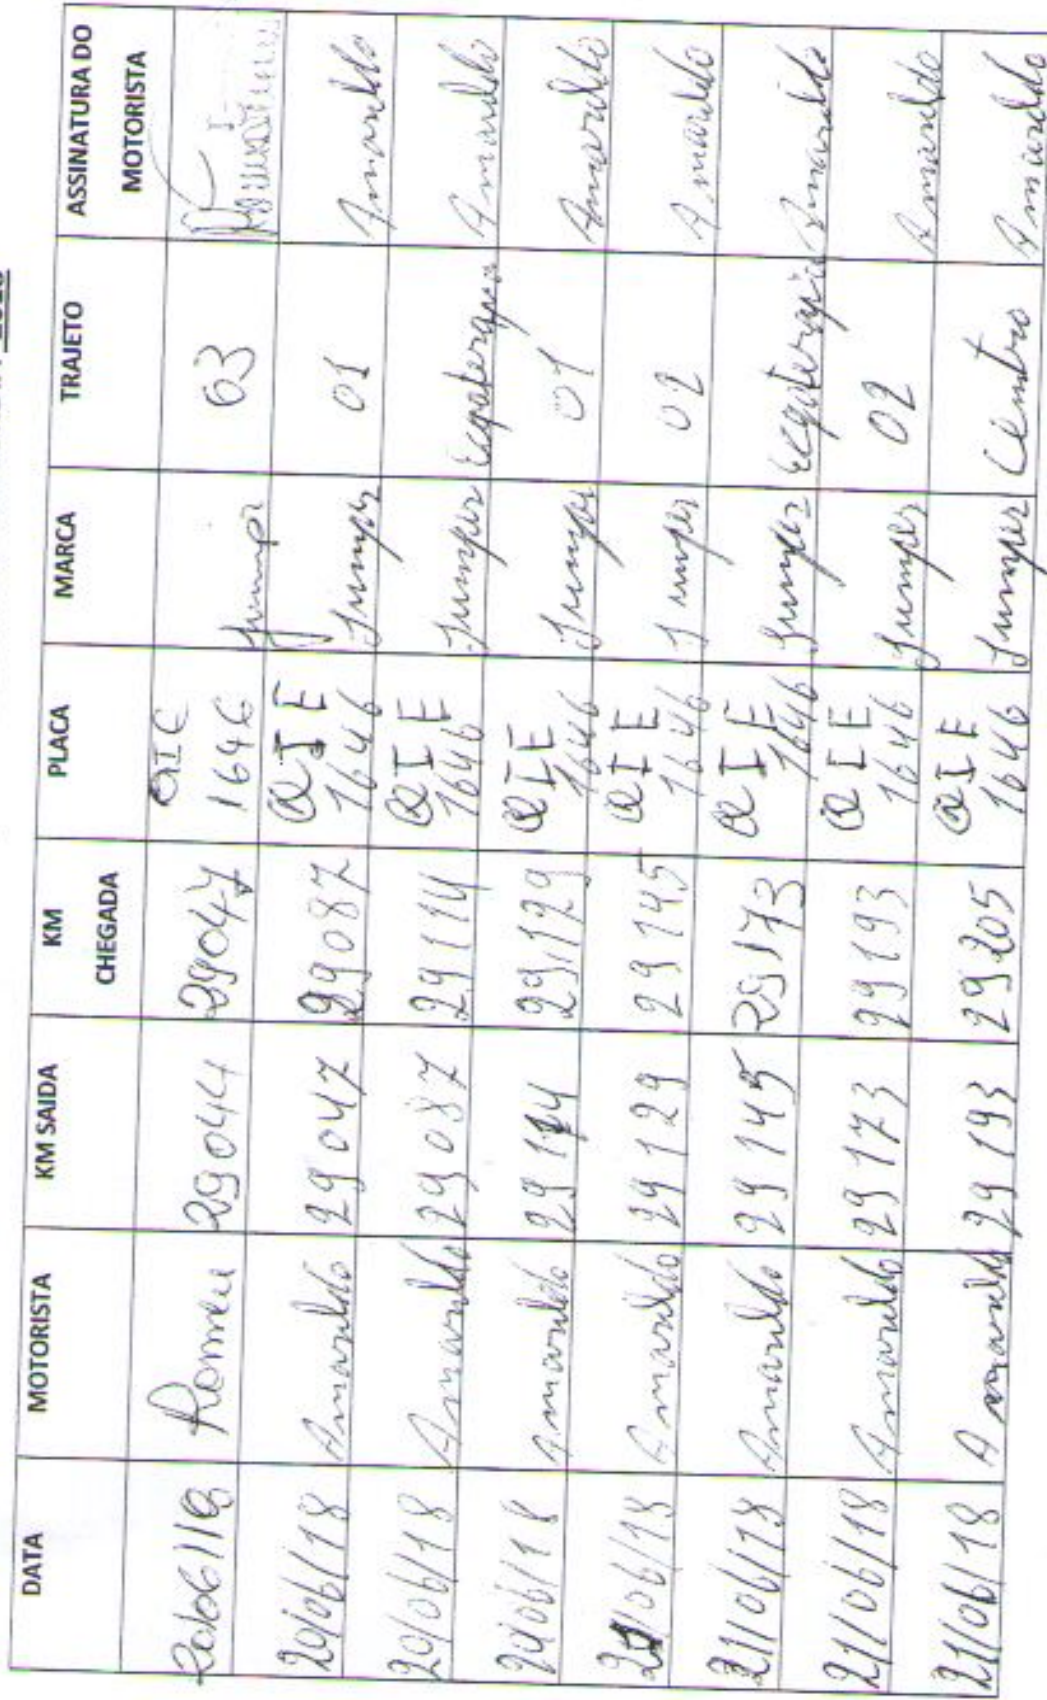 DATA MOTORISTA KM SAIDA KM CHEGADA PLACA MARCA TRAJETO ASSINATURA DO MOTORISTA
20/06/18 Romeu 29044 29047 QIE 1646 Jumper 03
20/06/18 Amarildo 29047 29087 QIE 1646 Jumper 01 Amarildo
20/06/18 Amarildo 29087 29114 QIE 1646 Jumper Ecoterapia Amarildo
20/06/18 Amarildo 29114 29129 QIE 1646 Jumper 01 Amarildo
21/06/18 Amarildo 29129 29145 QIE 1646 Jumper 02 Amarildo
21/06/18 Amarildo 29145 29173 QIE 1646 Jumper Ecoterapia Amarildo
21/06/18 Amarildo 29173 29193 QIE 1646 Jumper 02 Amarildo
21/06/18 Amarildo 29193 29205 QIE 1646 Jumper Centro Amarildo